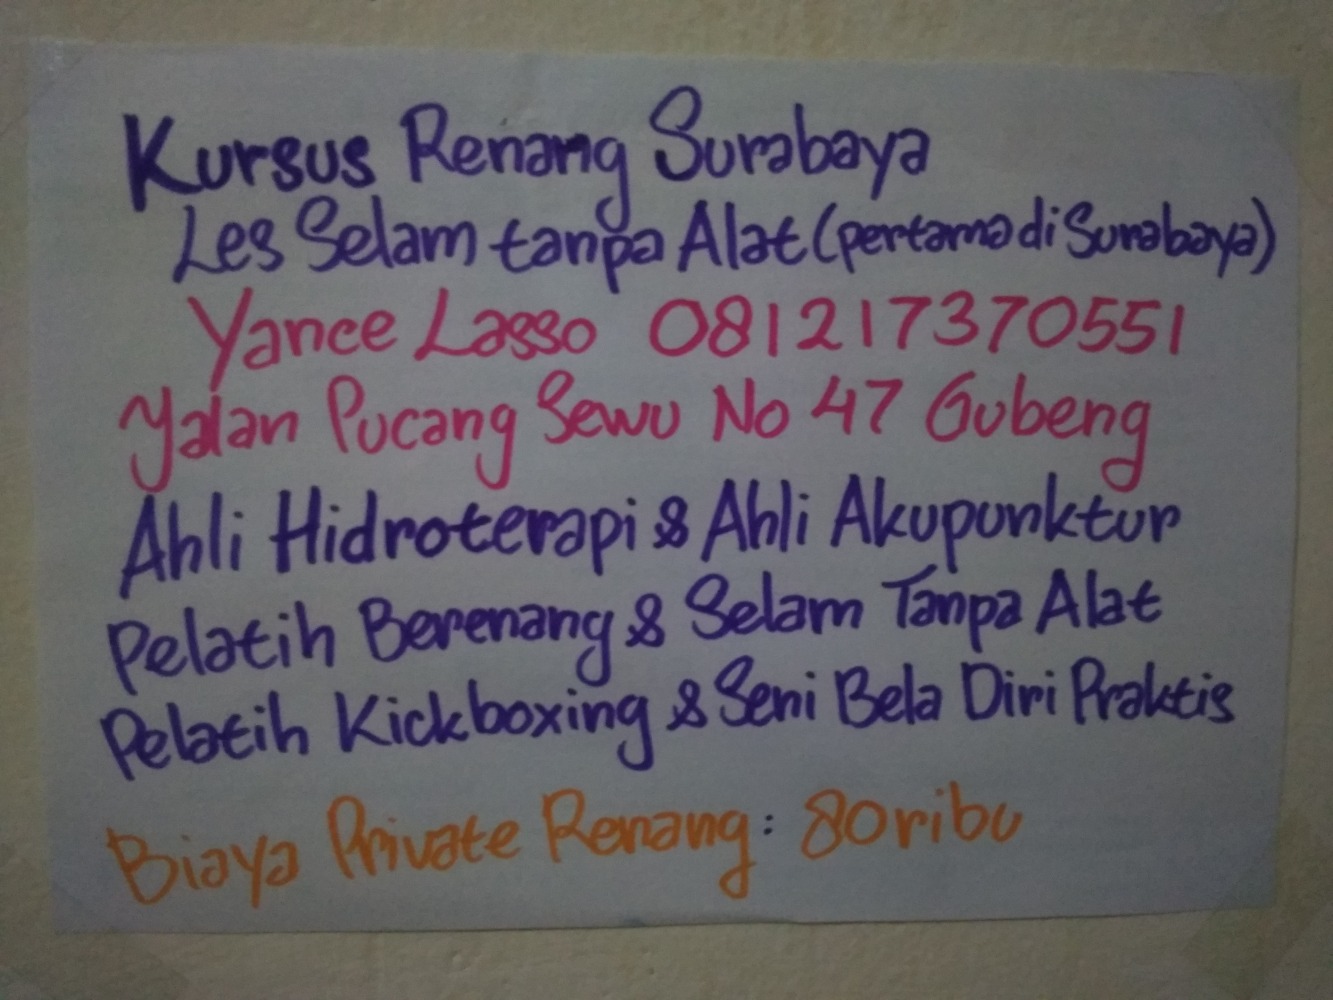 Kursus Renang Surabaya
Les Selam tanpa Alat (pertama di Surabaya)
Yance Lasso 081217370551
Yalan Pucang Sewu No 47 Gubeng
Ahli Hidroterapi & Ahli Akupunktur
Pelatih Berenang & Selam Tanpa Alat
Pelatih Kickboxing & Seni Bela Diri Praktis
Biaya Private Renang: 80ribu